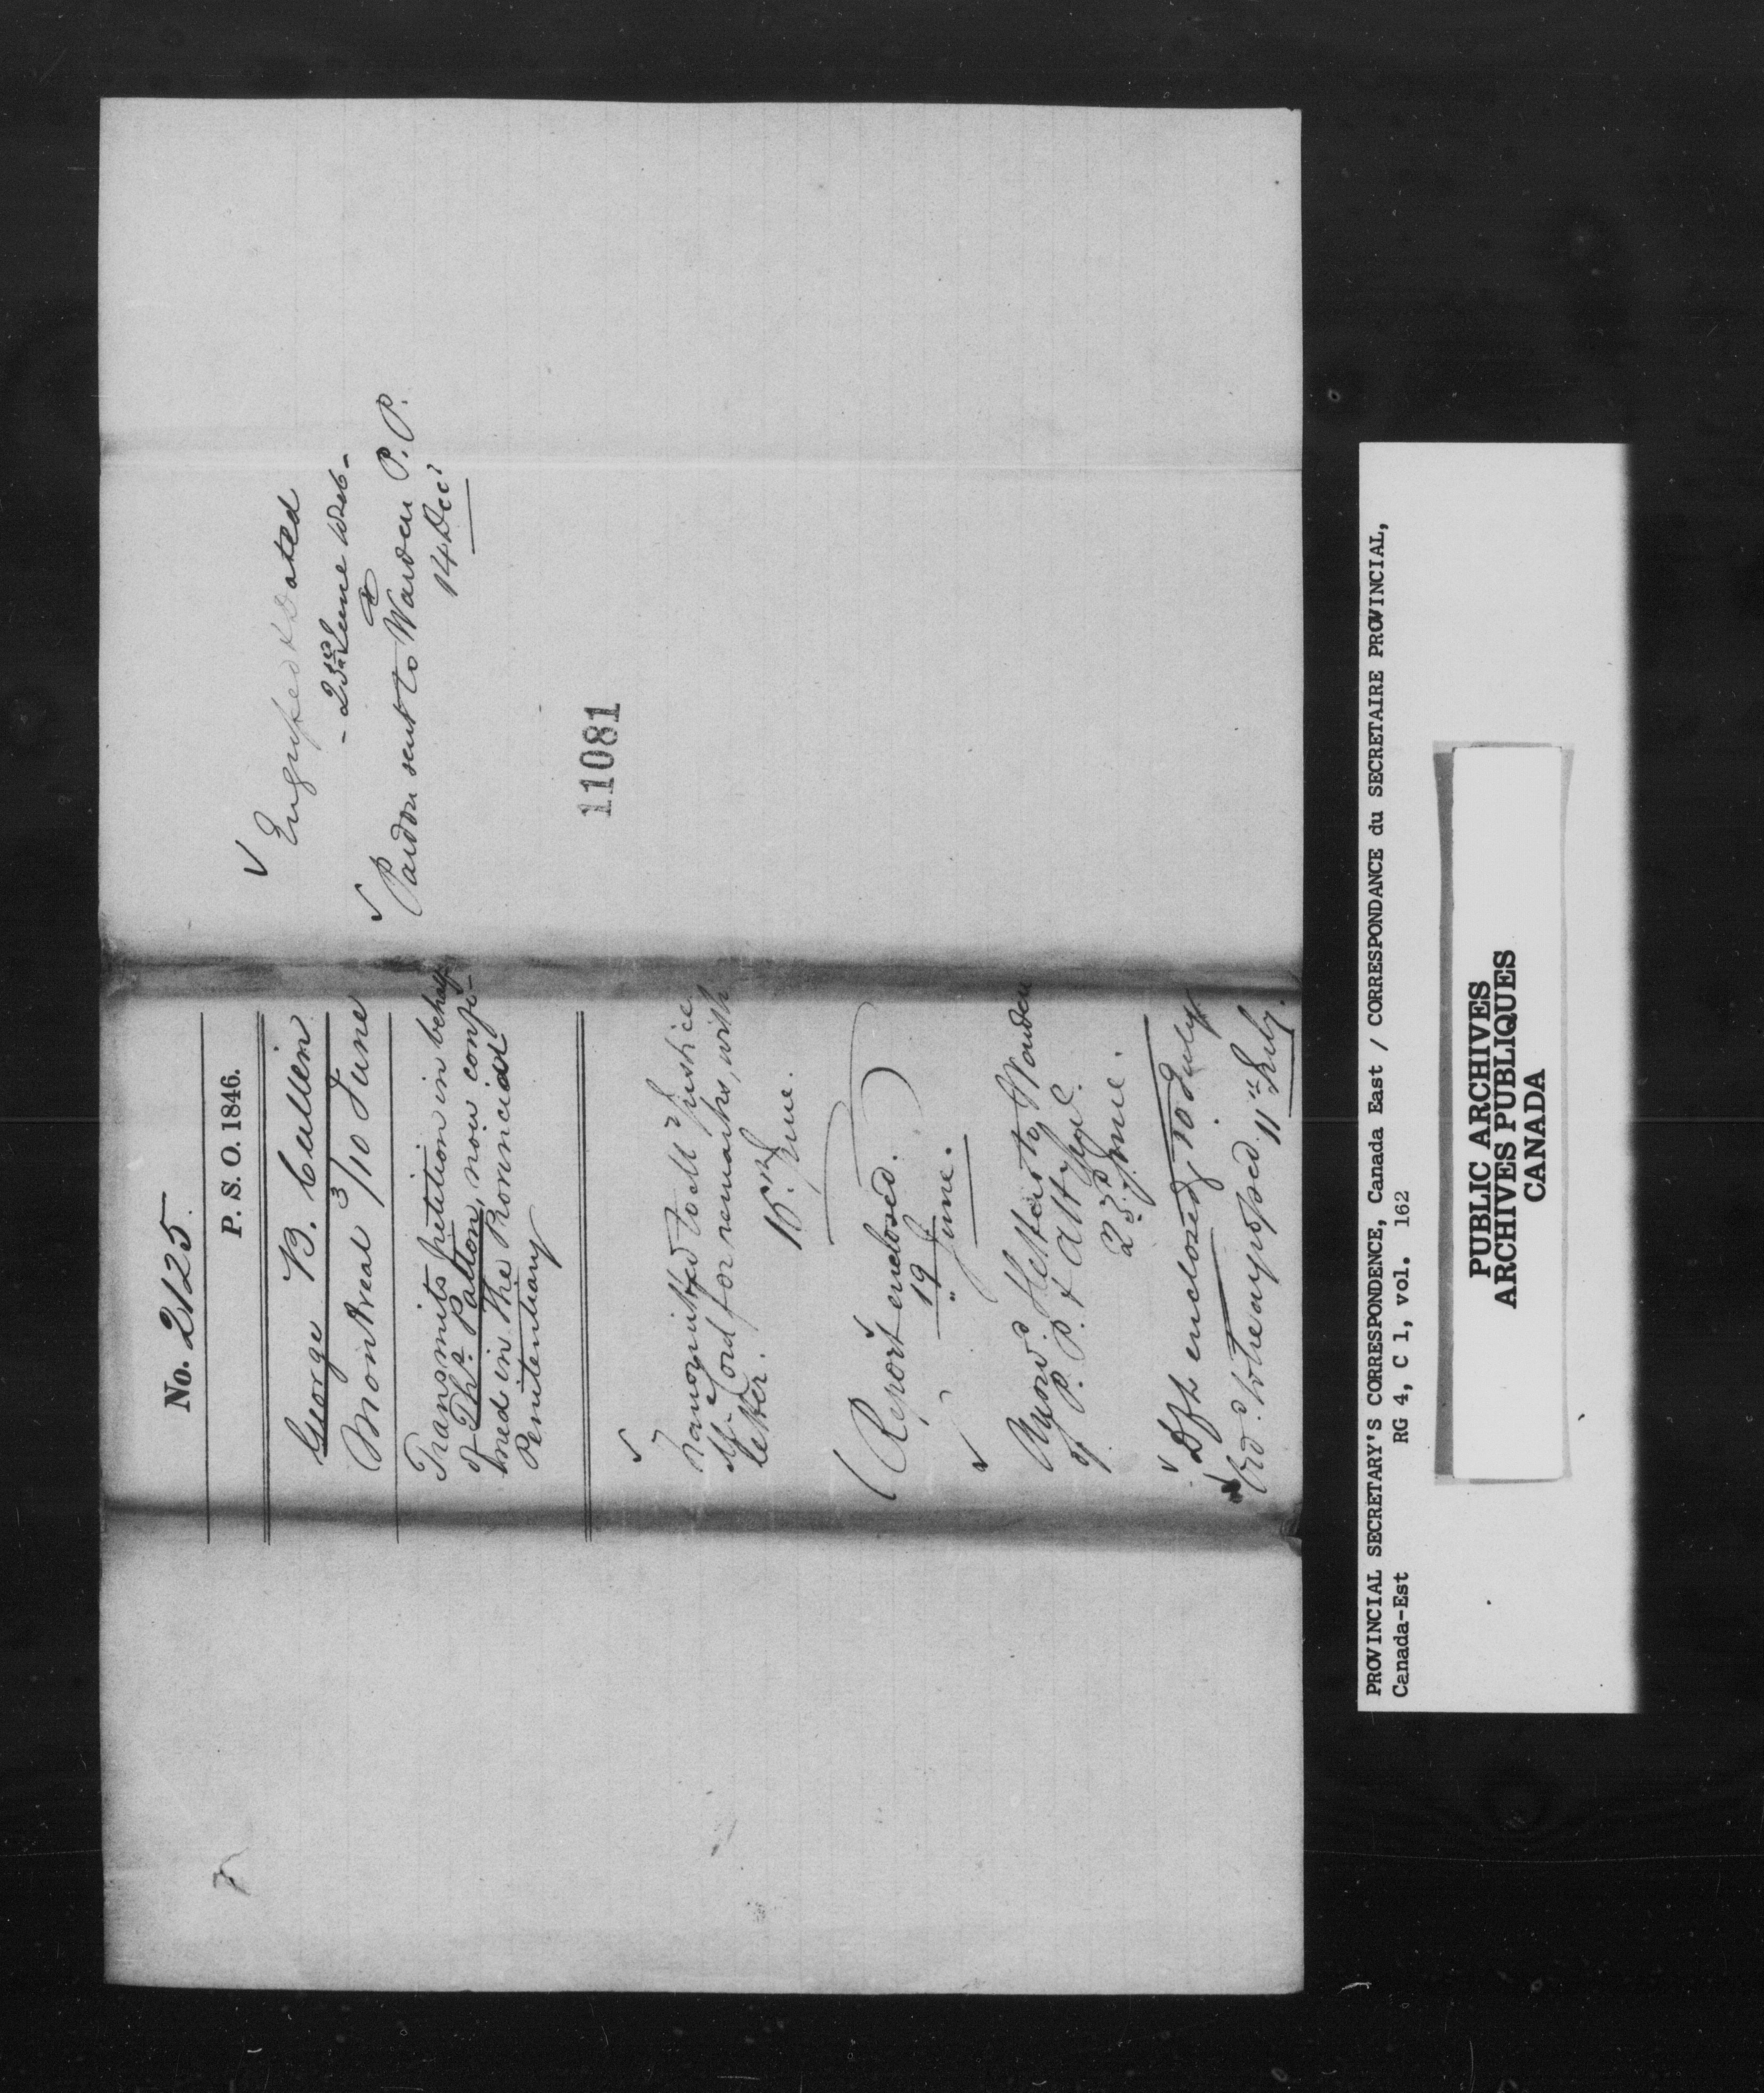 No. 2125.
P. S. O. 1846.
George B. Cullen
Montreal 3/10 June
Transmits petition in behalf
of Thos. Patton, now confi-
ned in the Provincial
Penitentiary
Transmitted to Mr Justice
McCord for remarks, with
letter.
15th June.
Report enclosed.
19 June.
Letters to Warden
of P. P. & Atty Genl.
23d June.
Dft enclosed 10 July
11th July.
Engrossed & dated
- 25th June 1846 -
Pardon sent to Warden P. P.
14 Decr
11081
PROVINCIAL SECRETARY'S CORRESPONDENCE, Canada East / CORRESPONDANCE du SECRETAIRE PROVINCIAL,
Canada-Est RG 4, C 1, vol. 162
PUBLIC ARCHIVES
ARCHIVES PUBLIQUES
CANADA